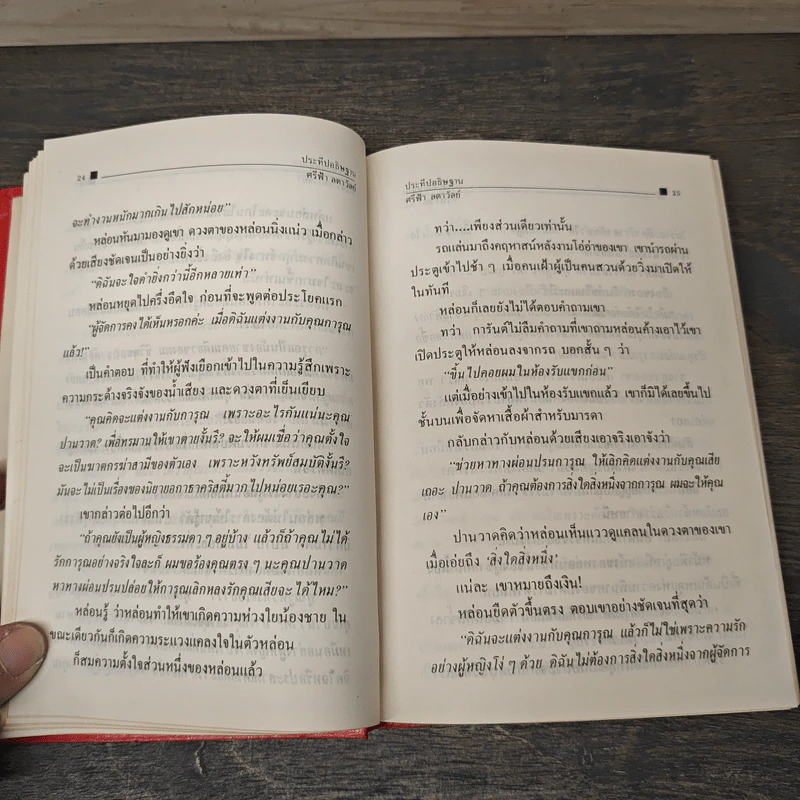 24
ประทีปอธิษฐาน
ศรีฟ้า ลดาวัลย์
จะทำงานหนักมากเกินไปสักหน่อย”
หล่อนหันมามองดูเขา ดวงตาของหล่อนนิ่งแน่ว เมื่อกล่าว
ด้วยเสียงชัดเจนเป็นอย่างยิ่งว่า
“ดิฉันจะใจดำยิ่งกว่านี้อีกหลายเท่า”
หล่อนหยุดไปครึ่งอึดใจ ก่อนที่จะพูดต่อประโยคแรก
“ผู้จัดการคงได้เห็นหรอกค่ะ เมื่อดิฉันแต่งงานกับคุณการุณ
แล้ว!”
เป็นคำตอบ ที่ทำให้ผู้ฟังเยือกเข้าไปในความรู้สึกเพราะ
ความกระด้างจริงจังของน้ำเสียง และดวงตาที่เย็นเยียบ
“คุณคิดจะแต่งงานกับการุณ เพราะอะไรกันแน่นะคุณ
ปานวาด? เพื่อทรมานให้เขาตายงั้นรึ? จะให้ผมเชื่อว่าคุณตั้งใจ
จะเป็นฆาตกรฆ่าสามีของตัวเอง เพราะหวังทรัพย์สมบัติงั้นรึ?
มันจะไม่เป็นเรื่องของนิยายอกาธาคริสตี้มากไปหน่อยเรอะคุณ?”
เขากล่าวต่อไปอีกว่า
“ถ้าคุณยังเป็นผู้หญิงธรรมดา ๆ อยู่บ้าง แล้วก็ถ้าคุณไม่ได้
รักการุณอย่างจริงใจละก็ ผมขอร้องคุณตรง ๆ นะคุณปานวาด
หาทางผ่อนปรนปล่อยให้การุณเลิกหลงรักคุณเสียจะได้ไหม?”
หล่อนรู้ ว่าหล่อนทำให้เขาเกิดความห่วงใยน้องชาย ใน
ขณะเดียวกันก็เกิดความระแวงแคลงใจในตัวหล่อน
ก็สมความตั้งใจส่วนหนึ่งของหล่อนแล้ว
ประทีปอธิษฐาน
ศรีฟ้า ลดาวัลย์
25
ทว่า....เพียงส่วนเดียวเท่านั้น
รถแล่นมาถึงคฤหาสน์หลังงามโอ่อ่าของเขา เขานำรถผ่าน
ประตูเข้าไปช้า ๆ เมื่อคนเฝ้าผู้เป็นคนสวนด้วยวิ่งมาเปิดให้
ในทันที
หล่อนก็เลยยังไม่ได้ตอบคำถามเขา
ทว่า การันต์ไม่ลืมคำถามที่เขาถามหล่อนค้างเอาไว้เขา
เปิดประตูให้หล่อนลงจากรถ บอกสั้น ๆ ว่า
“ขึ้นไปคอยผมในห้องรับแขกก่อน”
แต่เมื่อย่างเข้าไปในห้องรับแขกแล้ว เขาก็มิได้เลยขึ้นไป
ชั้นบนเพื่อจัดหาเสื้อผ้าสำหรับมารดา
กลับกล่าวกับหล่อนด้วยเสียงเอาจริงเอาจังว่า
“ช่วยหาทางผ่อนปรนการุณ ให้เลิกคิดแต่งงานกับคุณเสีย
เถอะ ปานวาด ถ้าคุณต้องการสิ่งใดสิ่งหนึ่งจากการุณ ผมจะให้คุณ
เอง”
ปานวาดคิดว่าหล่อนเห็นแววดูแคลนในดวงตาของเขา
เมื่อเอ่ยถึง ‘สิ่งใดสิ่งหนึ่ง’
แน่ละ เขาหมายถึงเงิน!
หล่อนยืดตัวขึ้นตรง ตอบเขาอย่างชัดเจนที่สุดว่า
“ดิฉันจะแต่งงานกับคุณการุณ แล้วก็ไม่ใช่เพราะความรัก
อย่างผู้หญิงโง่ ๆ ด้วย ดิฉันไม่ต้องการสิ่งใดสิ่งหนึ่งจากผู้จัดการ